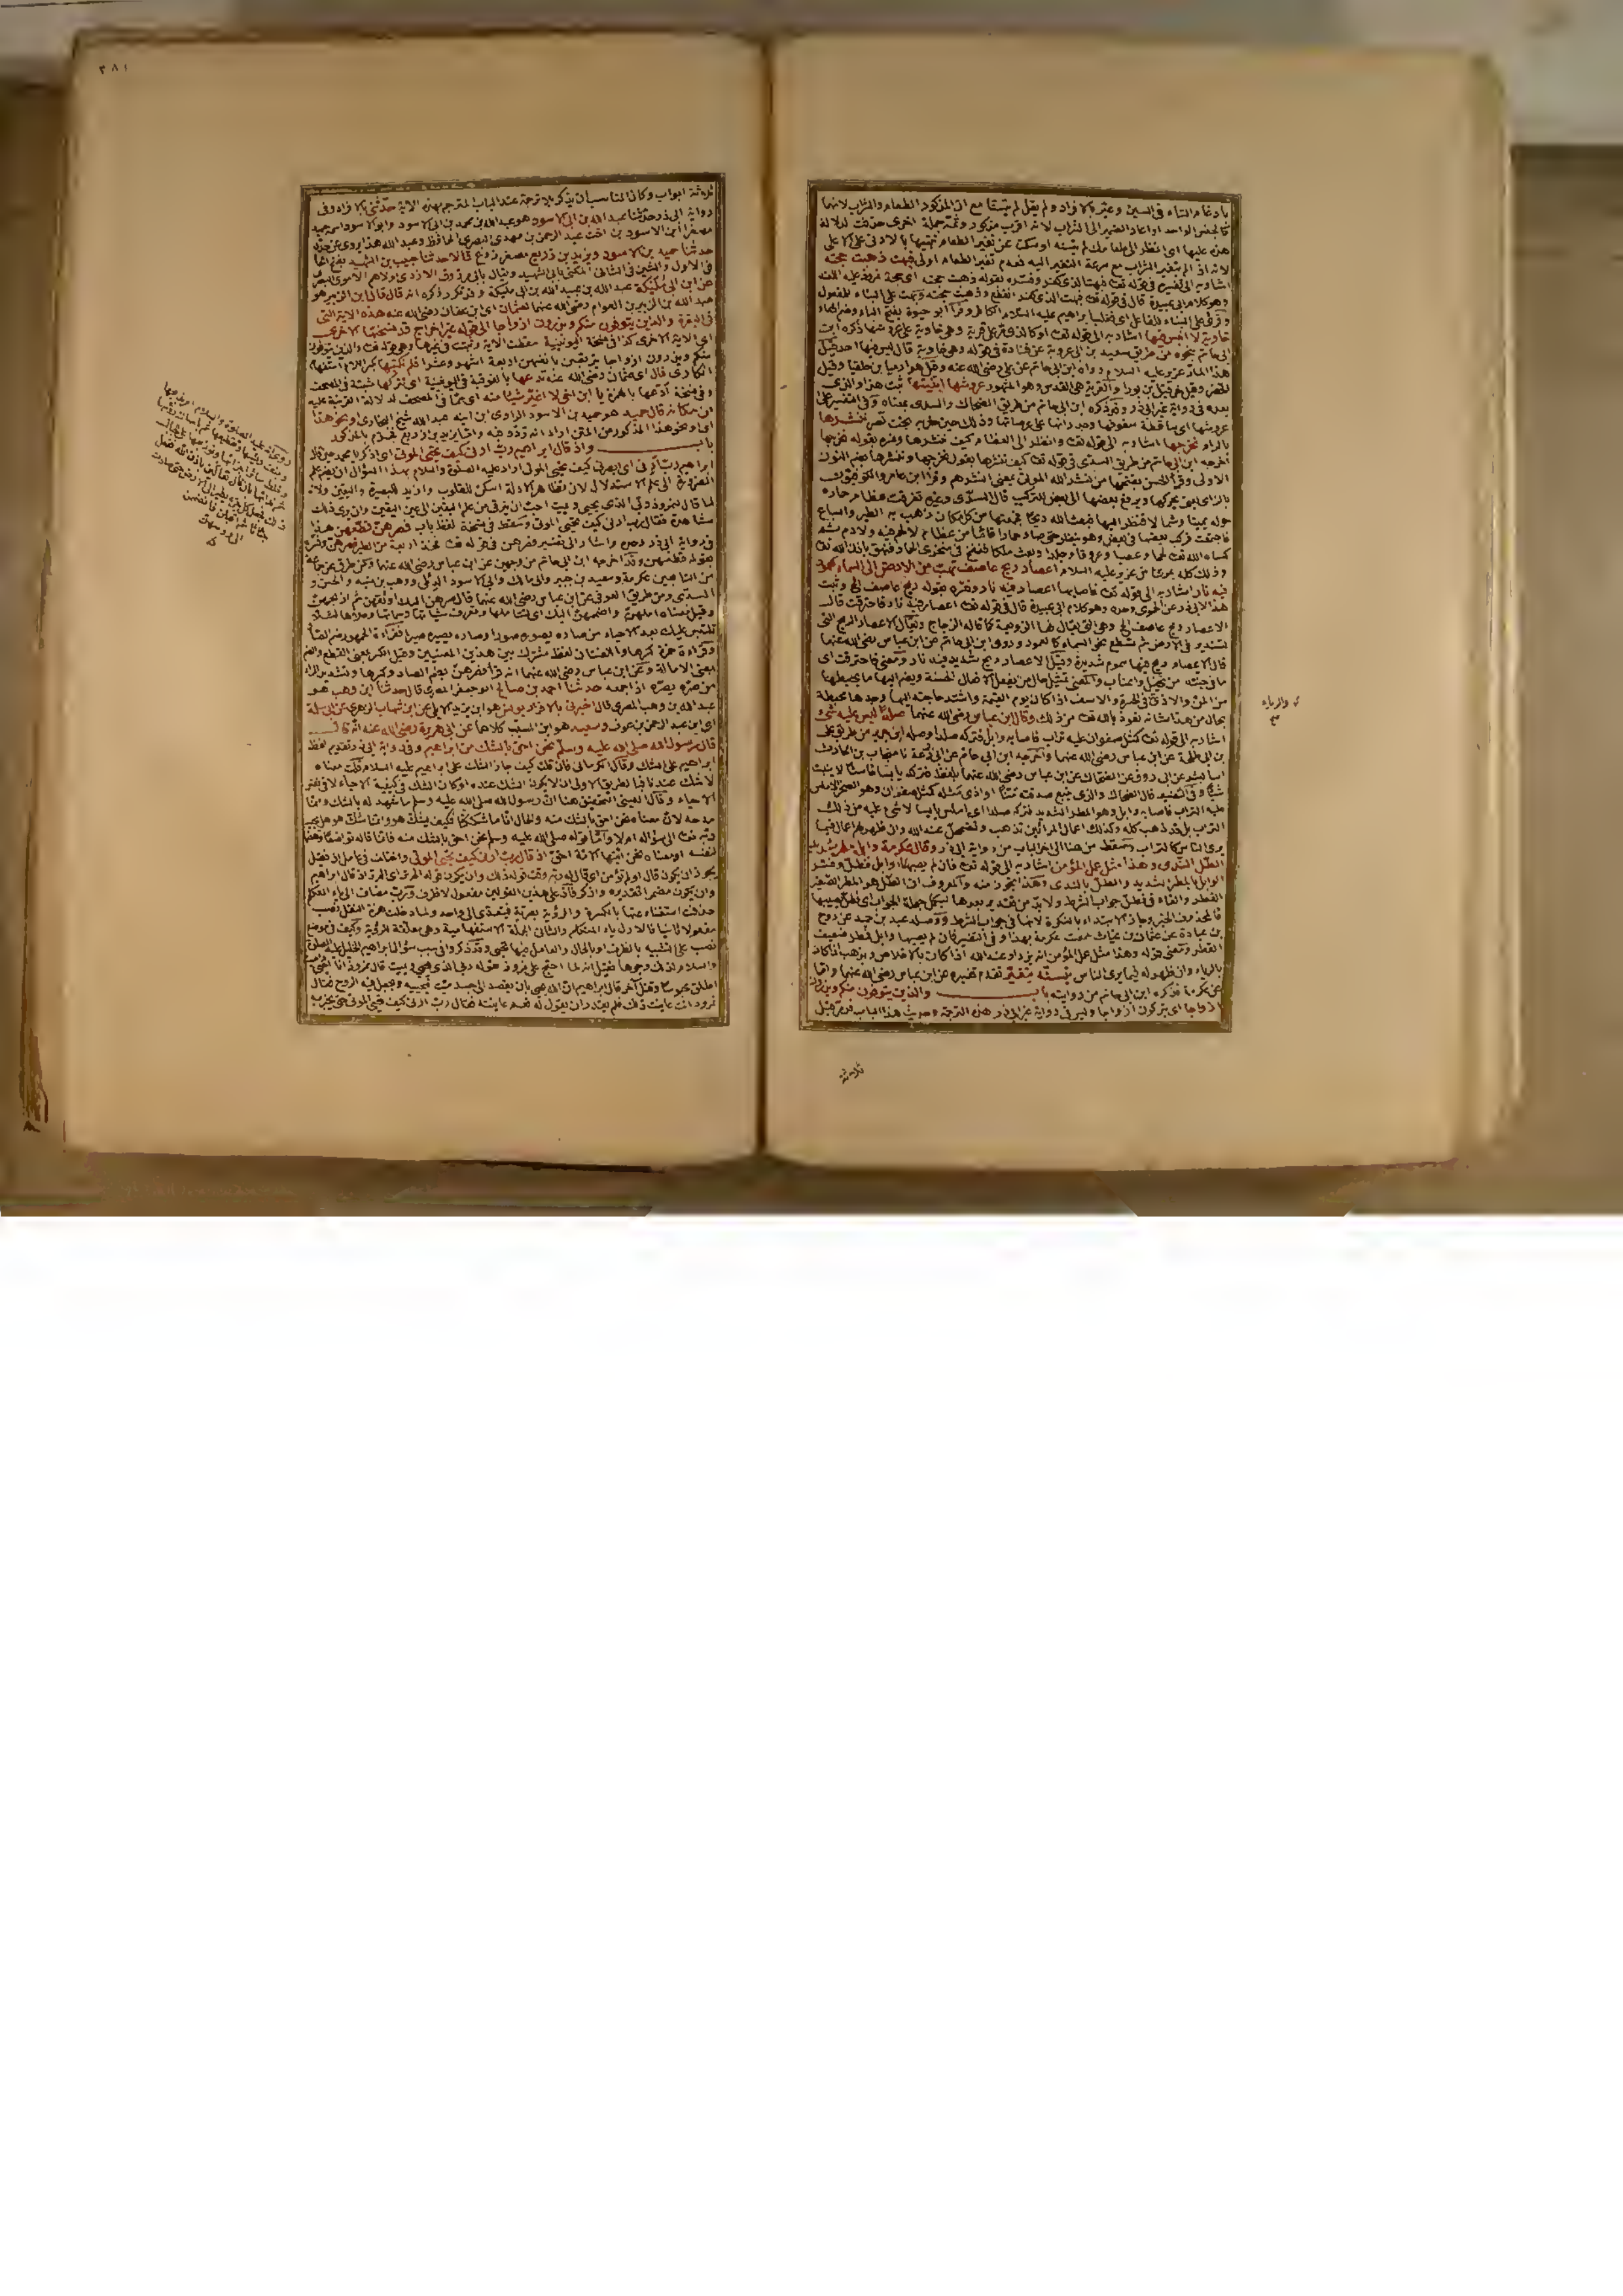 بادغام التاء في السين وعبّر بالافراد ولم يقل لم يتسنا مع ان المذكور الطعام والشراب لانهما
كالجنس الواحد او اعاد الضمير الى الشراب لانه اقرب مذكور وثمة جملة اخرى حذفت لدلالة
هذه عليها اي انظر الى طعامك لم يتسنه او سكت عن تغير الطعام تنبيها بالادنى على الاعلى
لانه اذا لم يتغير الشراب مع سرعة التغير اليه فعدم تغير الطعام اولى فبهت ذهبت حجته
اشار به الى تفسير قوله تعالى فبهت الذي كفر وفسره بقوله ذهبت حجته
وهو كلام ابي عبيدة قال في قوله تعالى فبهت الذي كفر انقطع وذهبت حجته وبهت على البناء للمفعول
خاوية لا انيس فيها اشار به الى قوله تعالى او كالذي مر على قرية وهي خاوية على عروشها ذكره ابن
ابي حاتم بنحوه من طريق سعيد بن ابي عروبة عن قتادة في قوله وهي خاوية قال ليس فيها احد قيل
هذا المار عزير عليه السلام رواه ابن ابي حاتم عن علي رضي الله عنه وقيل هو ارميا بن حلقيا وقيل
الخضر وقيل حزقيل بن بورا والقرية هي القدس وهو المشهور عروشها ابنيتها ثبت هذا والذي
بعده في رواية غير ابي ذر وقد ذكره ابن ابي حاتم من طريق الضحاك والسدي بمعناه
عروشها اي ساقطة سقوفها وجدرانها على عرصاتها وذلك حين خربه بخت نصر ننشرها
بالراء نخرجها اشار به الى قوله تعالى وانظر الى العظام كيف ننشرها وفسره بقوله نخرجها
اخرجه ابن ابي حاتم من طريق السدي في قوله تعالى كيف ننشرها يقول نخرجها وننشرها بضم النون
الاولى وقرأ الحسن بفتحها من نشر الله الموتى بمعنى انشرهم وقرأ ابن عامر والكوفيون
بالزاي يعني نحركها ونرفع بعضها الى بعض للتركيب قال السدي وغيره تفرقت عظام حماره
حوله يمينا وشمالا فنظر اليها فبعث الله ريحا فجمعتها من كل مكان ذهب به الطير والسباع
فاجتمعت فركب بعضها في بعض وهو ينظر حتى صار حمارا قائما من عظام لا لحم فيه ولا دم ثم
كساه الله تعالى لحما وعصبا وعروقا وجلدا وبعث ملكا فنفخ في منخري الحمار فنهق باذن الله تعالى
وذلك كله بمرأى من عزير عليه السلام اعصار ريح عاصف تهب من الارض الى السماء كعمود
فيه نار اشار به الى قوله تعالى فاصابها اعصار فيه نار وفسره بقوله ريح عاصف الخ وثبت
هذا لابي ذر عن الحموي وحده وهو كلام ابي عبيدة قال في قوله تعالى اعصار فيه نار فاحترقت قال
الاعصار ريح عاصف الخ وهي التي يقال لها الزوبعة كما قاله الزجاج ويقال الاعصار الريح التي
تستدير في الارض ثم تسطع نحو السماء كالعمود وروى ابن ابي حاتم عن ابن عباس رضي الله عنهما
قال الاعصار ريح فيها سموم شديدة وقيل الاعصار ريح شديد فيه نار ومعنى فاحترقت اي
ما في جنته من نخيل واعناب والمعنى تمثيل حال من يفعل الافعال الحسنة ويضم اليها ما يحبطها
من المن والاذى في الحسرة والاسف اذا كان يوم القيمة واشتد حاجته اليها وجدها محبطة
بحال من هذا شانه نعوذ بالله تعالى من ذلك وقال ابن عباس رضي الله عنهما صلدا ليس عليه شيء
اشار به الى قوله تعالى كمثل صفوان عليه تراب فاصابه وابل فتركه صلدا وصله ابن جرير من طريق علي
بن ابي طلحة عن ابن عباس رضي الله عنهما واخرجه ابن ابي حاتم عن ابي زرعة نا منجاب بن الحارث
انبأ بشر عن ابي روق عن الضحاك عن ابن عباس رضي الله عنهما بلفظ فتركه يابسا خاسئا لا ينبت
شيئا وفي التفسير قال الضحاك والذي يتبع صدقته منّا او اذى مثله كمثل صفوان وهو الصخر الاملس
عليه التراب فاصابه وابل وهو المطر الشديد فتركه صلدا اي املس يابسا لا شيء عليه من ذلك
التراب بل قد ذهب كله وكذلك اعمال المرائين تذهب وتضمحل عند الله وان ظهر لهم اعمال فيما
يرى الناس كالتراب وسقط من هنا الى اخر الباب من رواية ابي ذر وقال عكرمة وابل مطر شديد
الطل الندى وهذا مثل عمل المؤمن اشار به الى قوله تعالى فان لم يصبها وابل فطل وفسر
الوابل بالمطر الشديد والطل بالندى وهذا تجوز منه والمعروف ان الطل هو المطر الصغير
القطر والفاء في فطل جواب الشرط ولا بد من تقدير بعدها لتكمل جملة الجواب اي فطل يصيبها
فالمحذوف الخبر وجاز الابتداء بالنكرة لانها في جواب الشرط ووصله عبد بن حميد عن روح
بن عبادة عن عثمان بن غياث سمعت عكرمة بهذا وفي التفسير فان لم يصبها وابل فطر ضعيف
القطر ومعنى قوله وهذا مثل عمل المؤمن انه يزداد عند الله اذا كان بالاخلاص ويذهب اذا كان
بالرياء وان ظهر له فيما يرى الناس يتسنه يتغير تقدم تفسيره عن ابن عباس رضي الله عنهما واما
عن عكرمة فذكره ابن ابي حاتم من روايته باب والذين يتوفون منكم ويذرون
ازواجا اي يتركون ازواجا وليس في رواية غير ابي ذر هذه الترجمة وحديث هذا الباب قد مر قبل
ثلاثة
والرياء
٣٨١
ثلاثة ابواب وكان المناسب ان يذكر بلا ترجمة عند الباب المترجم بهذه الاية حدثني بالافراد وفي
رواية ابي ذر حدثنا عبد الله بن ابي الاسود هو عبد الله بن محمد بن ابي الاسود وابو الاسود اسمه حميد
مصغرا ابن الاسود بن اخت عبد الرحمن بن مهدي البصري الحافظ وعبد الله هذا يروي عن جده
حدثنا حميد بن الاسود ويزيد بن زريع مصغر زرع قالا حدثنا حبيب بن الشهيد بفتح الحاء
في الاول والشين في الثاني المكنى بابي الشهيد ويقال بابي مرزوق الازدي ولاهم الاموي البصري
عن ابن ابي مليكة عبد الله بن عبيد الله بن ابي مليكة وقد تكرر ذكره انه قال قال ابن الزبير هو
عبد الله بن الزبير بن العوام رضي الله عنهما لعثمان اي ابن عفان رضي الله عنه هذه الاية التي
في البقرة والذين يتوفون منكم ويذرون ازواجا الى قوله غير اخراج قد نسختها الاخرى
اي الاية الاخرى كذا في نسخة اليونينية سقطت الاية وثبتت في غيرها وهي قوله تعالى والذين يتوفون
منكم ويذرون ازواجا يتربصن بانفسهن اربعة اشهر وعشرا فلم تكتبها بكسر اللام استفهام
انكاري قال اي عثمان رضي الله عنه تدعها بالفوقية في اليونينية اي تتركها مثبتة في المصحف
وفي نسخة ادعها بالهمزة يا ابن اخي لا اغير شيئا منه اي مما في المصحف لدلالة القرينة عليه
من مكانه قال حميد هو حميد بن الاسود الراوي ابن ابنه عبد الله شيخ البخاري او نحو هذا
اي او نحو هذا المذكور من المتن اراد انه تردد فيه واما يزيد بن زريع فجزم بالمذكور
باب واذ قال ابراهيم رب ارني كيف تحيي الموتى اي اذكر يا محمد حين قال
ابراهيم رب ارني اي ابصرني كيف تحيي الموتى اراد عليه الصلوة والسلام بهذا السؤال ان يضم علم
الضروري الى علم الاستدلال لان تظاهر الادلة اسكن للقلوب وازيد للبصيرة واليقين ولانه
لما قال لنمروذ ربي الذي يحيي ويميت احب ان يترقى من علم اليقين الى عين اليقين وان يرى ذلك
مشاهدة فقال رب ارني كيف تحيي الموتى وسقط في نسخة لفظ باب فصرهن قطعهن هذا
في رواية ابي ذر وحده واشار الى تفسير فصرهن في قوله تعالى فخذ اربعة من الطير فصرهن وفسره
بقوله قطعهن وقد اخرجه ابن ابي حاتم من وجهين عن ابن عباس رضي الله عنهما ومن طرق عن جماعة
من التابعين عكرمة وسعيد بن جبير وابي مالك وابي الاسود الدؤلي ووهب بن منبه والحسن و
السدي ومن طريق العوفي عن ابن عباس رضي الله عنهما قال صرهن اليك اوثقهن ثم اذبحهن
وقيل معناه املهن واضممهن اليك اي لتتأملها وتعرف شياتها لئلا
تلتبس عليك بعد الاحياء من صاره يصوره صورا وصاره يصيره صيرا فقراءة الجمهور ضم الصاد
وقراءة حمزة كسرها واللغتان لفظ مشترك بين هذين المعنيين وقيل الكسر بمعنى القطع والضم
بمعنى الامالة وعن ابن عباس رضي الله عنهما انه قرأ فصرهن بضم الصاد وكسرها وتشديد الراء
من صره يصره اذا جمعه حدثنا احمد بن صالح ابو جعفر المصري قال حدثنا ابن وهب هو
عبد الله بن وهب المصري قال اخبرني بالافراد يونس هو ابن يزيد الايلي عن ابن شهاب الزهري عن ابي سلمة
اي ابن عبد الرحمن بن عوف وسعيد هو ابن المسيب كلاهما عن ابي هريرة رضي الله عنه انه قال
قال رسول الله صلى الله عليه وسلم نحن احق بالشك من ابراهيم وفي رواية ابي ذر تقديم لفظ
ابراهيم على الشك وقال الكرماني فان قلت كيف جاز الشك على ابراهيم عليه السلام قلت معناه
لا شك عندنا فبالطريق الاولى ان لا يكون الشك عنده او كان الشك في كيفية الاحياء لا في نفس
الاحياء وقال العيني التحقيق هنا ان رسول الله صلى الله عليه وسلم ما تعهد له بالشك وانما
مدحه لان معناه نحن احق بالشك منه والحال انا ما شككنا فكيف يشك هو وانما شك هو هل يجيبه
ربه تعالى الى سؤاله ام لا واما قوله صلى الله عليه وسلم نحن احق بالشك منه فانما قاله تواضعا وهضما
لنفسه او معناه نحن ايتها الامة احق اذ قال رب ارني كيف تحيي الموتى واختلف في عامل اذ فقيل
يجوز ان يكون قال اولم تؤمن اي قال له ربه وقت قوله ذلك وان يكون قوله الم تر اي الم تر اذ قال ابراهيم
وان يكون مضمرا تقديره واذكر فاذ على هذين القولين مفعول لا ظرف ورب مضاف الى ياء المتكلم
حذفت استغناء عنها بالكسرة والرؤية بصرية فتتعدى الى واحد ولما دخلت همزة النقل نصب
مفعولا ثانيا فالاول ياء المتكلم والثاني الجملة الاستفهامية وهي معلقة للرؤية وكيف في موضع
نصب على التشبيه بالظرف او بالحال والعامل فيها تحيي وقد ذكروا في سبب سؤال ابراهيم الخليل عليه الصلوة
والسلام لذلك وجوها فقيل انه لما احتج على نمروذ بقوله ربي الذي يحيي ويميت قال نمروذ انا احيي
اطلق محبوسا وقتل آخر قال ابراهيم ان الله يحيي بان يقصد الى جسد ميت فيحييه ويجعل فيه الروح فقال
نمرود انت عاينت ذلك فلم يقدر ان يقول له نعم عاينته فقال رب ارني كيف تحيي الموتى حتى يخبر به